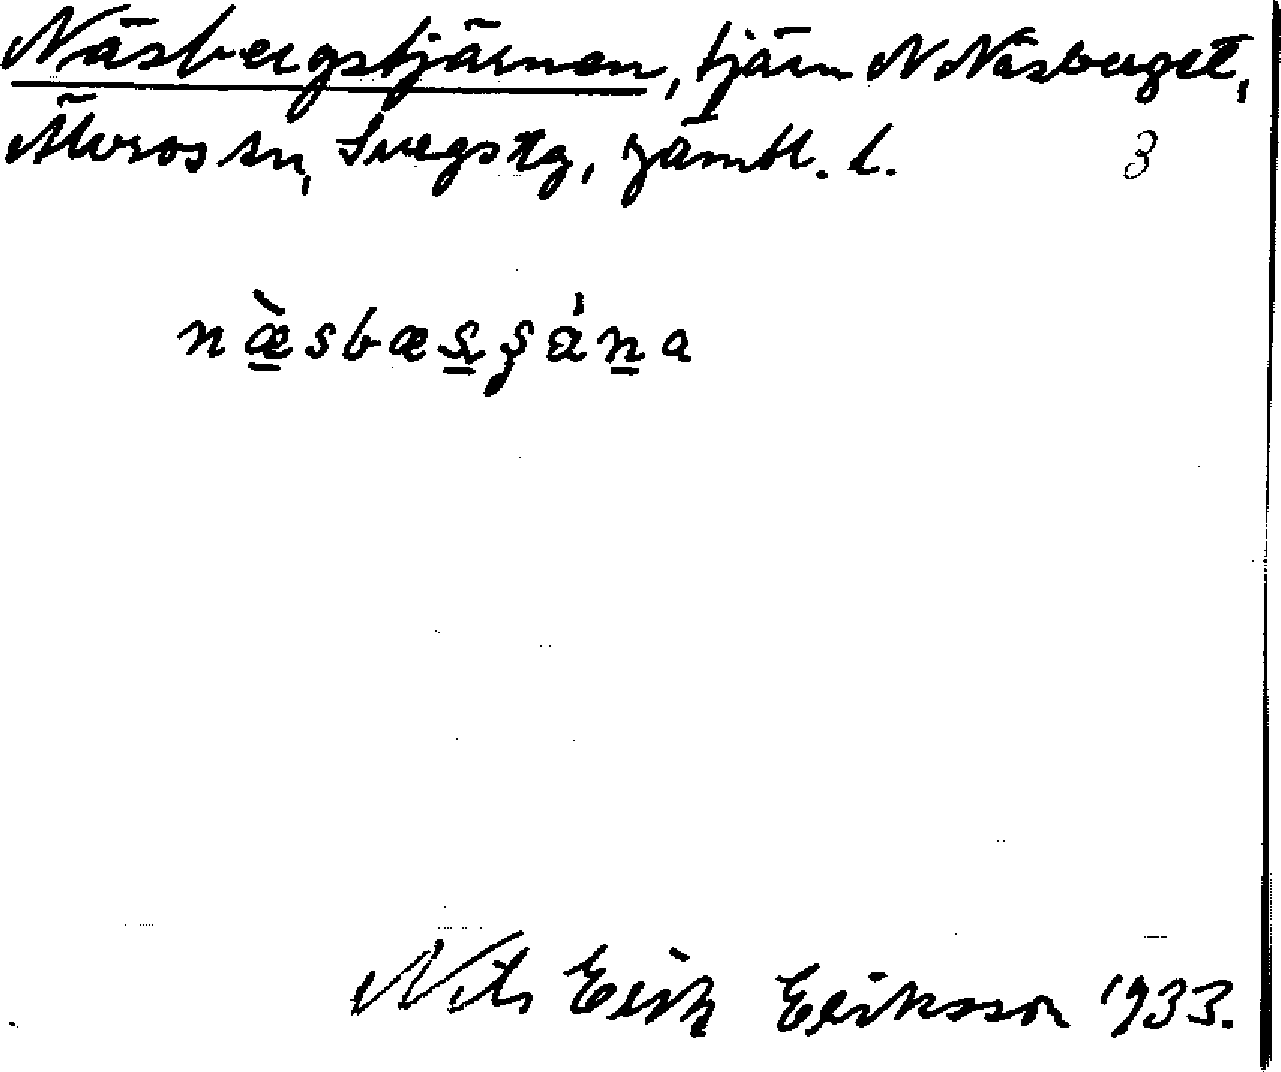 Näsbergstjärnen, tjärn N Näsberget,
Älvros sn, Svegs tg, Jämtl. l. 3
næ̀sbæsʂána
Nils Erik Eriksson 1933.